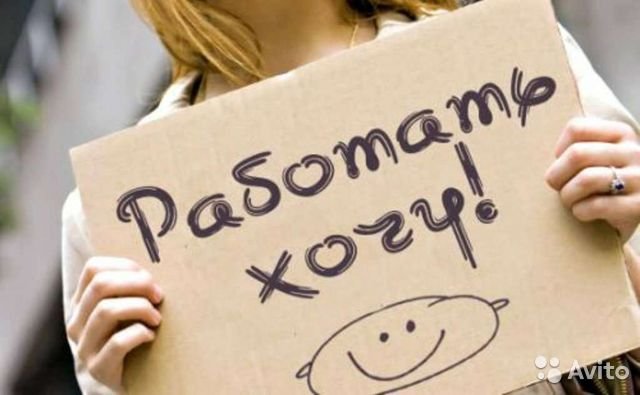 Работать
хочу!
Avito